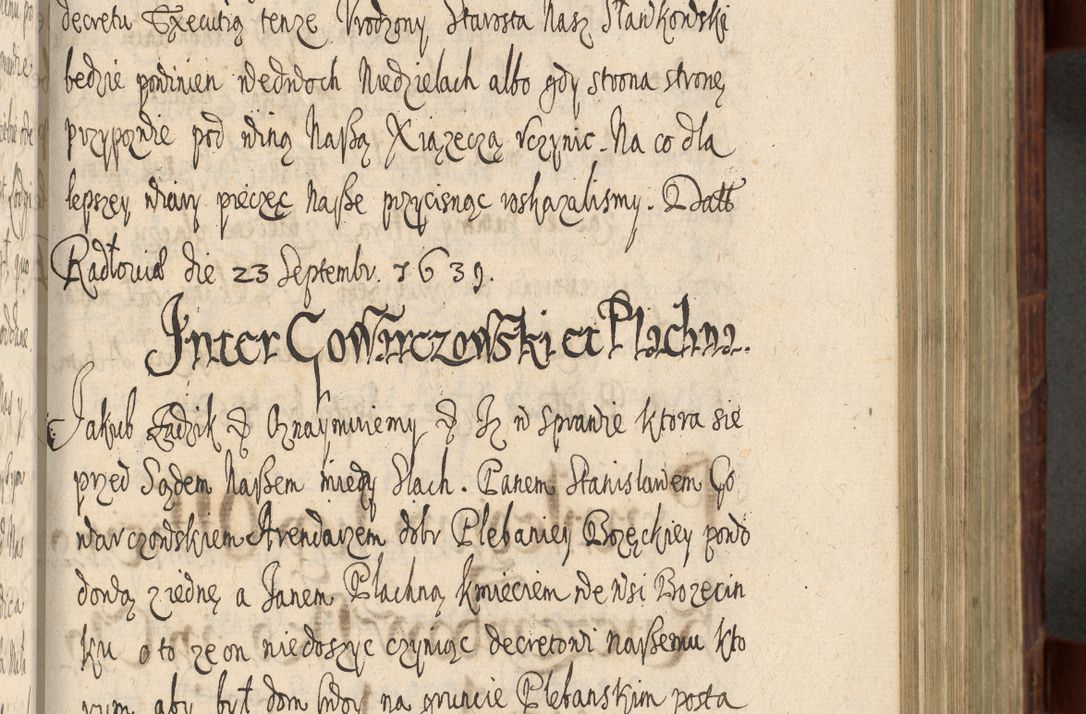 decretu Executią tenze Vrodzony Starosta Nasz Sławkowski
bedzie powinien wedwoch Niedzielach albo gdy strona stronę
przypozwie pod winą Naßą Xiązęczą vczynic. Na co dla
lepszey wiary pieczęc Naße przycisnąc roskazalismy. Datt
Radłoviæ die 23 Septembr. 1639.
Inter Gowarczowski et Płachna.
Jakub Zadzik & Oznaymuiemy & Iz w sprawie ktora sie
przed Sądem Naßem miedzy Slach. Panem Stanisławem Go
warczowskiem Arendarzem dobr Plebaniey Bozęckiey powo
dową z iednę a Janem Płachną kmieciem we wsi Borzecin
ku o to ze on niedoszyc czyniąc decretowi naßemu kto
rym aby był dom na gruncie Plebanskim posta